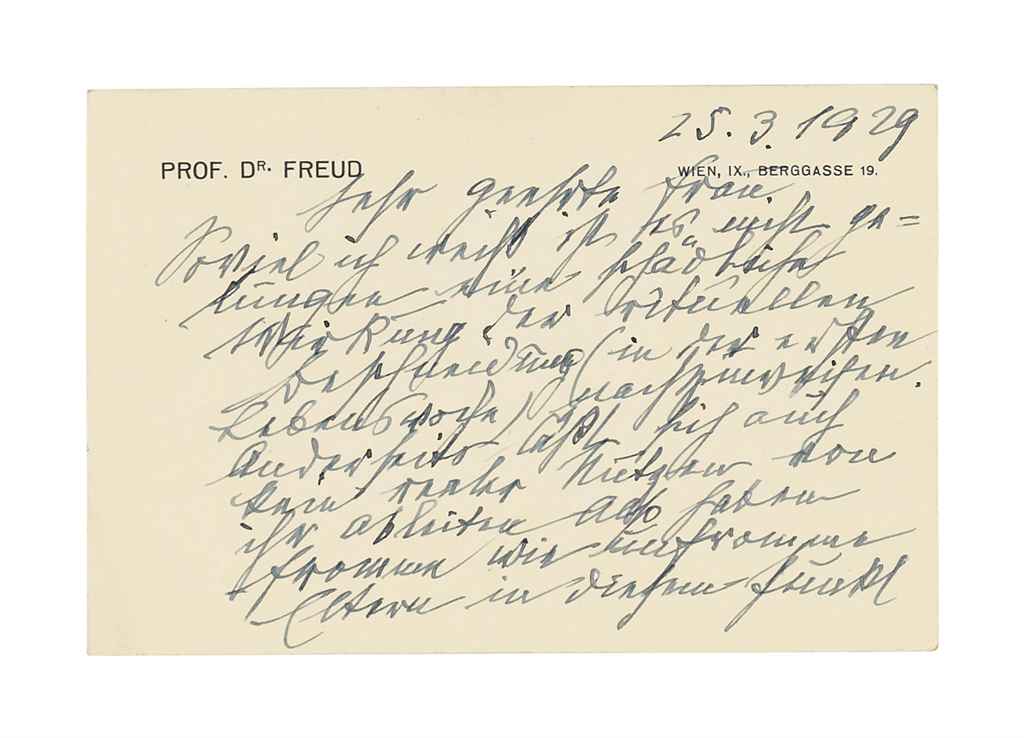 25.3.1929
PROF. DR. FREUD WIEN, IX., BERGGASSE 19.
Sehr geehrte Frau
Soviel ich weiß ist es nicht ge=
lungen eine schädliche
Wirkung der rituellen
Beschneidung (in der ersten
Lebenswoche) nachzuweisen.
Anderseits läßt sich auch
kein realer Nutzen von
ihr ableiten Also haben
fromme wie unfromme
Eltern in diesem Punkt